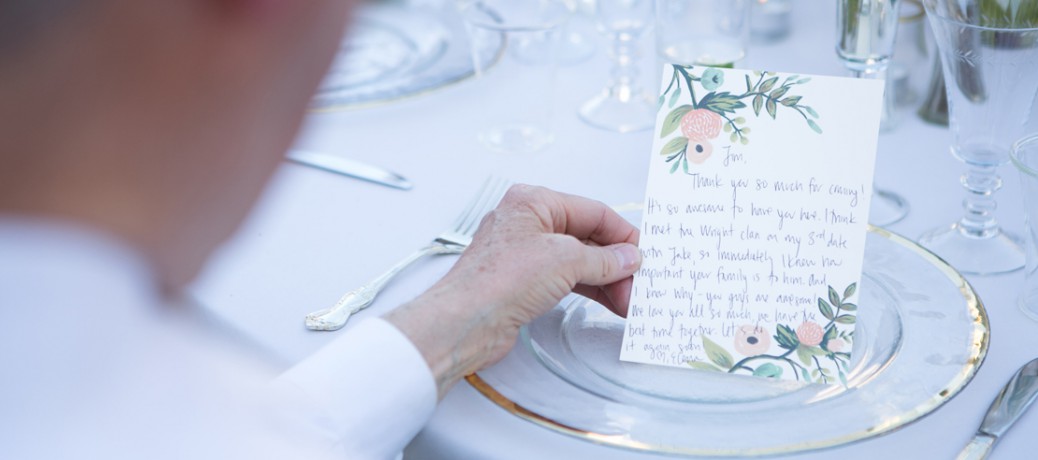 Jim,
Thank you so much for coming!
It's so awesome to have you here. I think
I met the Wright clan on my 3rd date
with Jake, so immediately I knew how
important your family is to him. and
I know why - you guys are awesome!
We love you all so much, we have the
best time together. Let's do
it again soon.